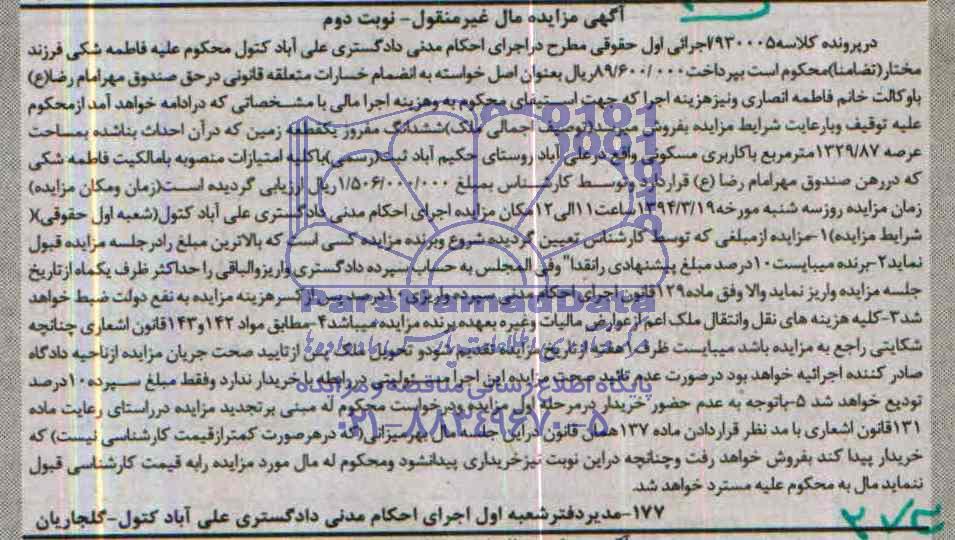 آگهی مزایده مال غیرمنقول- نوبت دوم
درپرونده کلاسه۷۹۳۰۰۰۵اجرائی اول حقوقی مطرح دراجرای احکام مدنی دادگستری علی آباد کتول محکوم علیه فاطمه شکی فرزند
مختار(تضامنا)محکوم است بپرداخت۸۹/۶۰۰/۰۰۰ریال بعنوان اصل خواسته به انضمام خسارات متعلقه قانونی درحق صندوق مهرامام رضا(ع)
باوکالت خانم فاطمه انصاری ونیزهزینه اجرا که جهت استیفای محکوم به وهزینه اجرا مالی با مشخصاتی که درادامه خواهد آمد ازمحکوم
علیه توقیف وبارعایت شرایط مزایده بفروش میرسد(توصیف اجمالی ملک)ششدانگ مفروز یکقطعه زمین که درآن احداث بناشده بمساحت
عرصه ۱۳۲۹/۸۷مترمربع باکاربری مسکونی واقع درعلی آباد روستای حکیم آباد ثبت(رسمی)باکلیه امتیازات منصوبه بامالکیت فاطمه شکی
که دررهن صندوق مهرامام رضا (ع) قراردارد وتوسط کارشناس بمبلغ ۱/۵۰۶/۰۰۰/۰۰۰ریال ارزیابی گردیده است(زمان ومکان مزایده)
زمان مزایده روزسه شنبه مورخه۱۳۹۴/۳/۱۹ساعت۱۱الی۱۲مکان مزایده اجرای احکام مدنی دادگستری علی آباد کتول(شعبه اول حقوقی)(
شرایط مزایده)۱-مزایده ازمبلغی که توسط کارشناس تعیین گردیده شروع وبرنده مزایده کسی است که بالاترین مبلغ رادرجلسه مزایده قبول
نماید۲-برنده میبایست۱۰درصد مبلغ پیشنهادی رانقدا" وفی المجلس به حساب سپرده دادگستری واریزوالباقی را حداکثر ظرف یکماه ازتاریخ
جلسه مزایده واریز نماید والا وفق ماده۱۲۹قانون اجرای احکام مدنی سپرده واریزی۱۰درصدپس ازکسرهزینه مزایده به نفع دولت ضبط خواهد
شد۳-کلیه هزینه های نقل وانتقال ملک اعم ازعوارض مالیات وغیره بعهده برنده مزایده میباشد۴-مطابق مواد ۱۴۲و۱۴۳قانون اشعاری چنانچه
شکایتی راجع به مزایده باشد میبایست ظرف۱هفته ازتاریخ مزایده تقدیم شودو تحویل ملک پس ازتایید صحت جریان مزایده ازناحیه دادگاه
صادر کننده اجرائیه خواهد بود درصورت عدم تائید صحت مزایده این اجرا مسئولیتی دررابطه باخریدار ندارد وفقط مبلغ سپرده۱۰درصد
تودیع خواهد شد ۵-باتوجه به عدم حضور خریدار درمرحله اول مزایده ودرخواست محکوم له مبنی برتجدید مزایده درراستای رعایت ماده
۱۳۱قانون اشعاری با مد نظر قراردادن ماده ۱۳۷همان قانون دراین جلسه مال بهرمیزانی(که درهرصورت کمترازقیمت کارشناسی نیست) که
خریدار پیدا کند بفروش خواهد رفت وچنانچه دراین نوبت نیزخریداری پیدانشود ومحکوم له مال مورد مزایده رابه قیمت کارشناسی قبول
ننماید مال به محکوم علیه مسترد خواهد شد.
۱۷۷-مدیردفترشعبه اول اجرای احکام مدنی دادگستری علی آباد کتول-گلجاریان
ParsNamadData
پایگاه اطلاع رسانی مناقصه و مزایده
۰۲۱-۸۸۳۴۹۶۷۰-۵